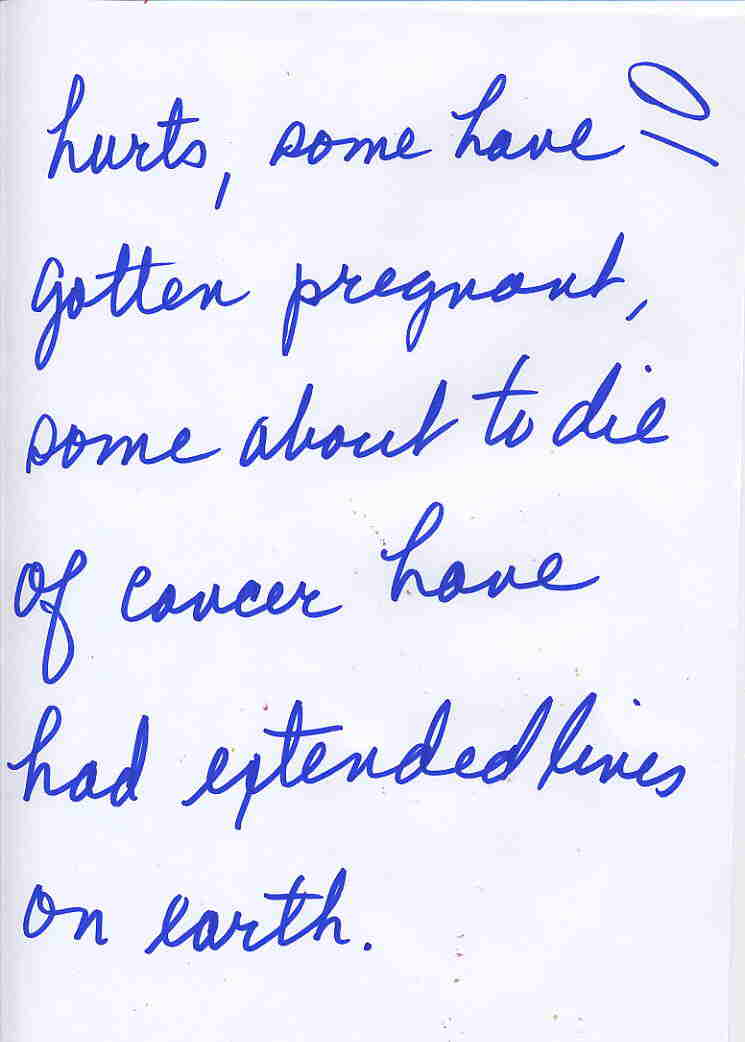 hurts, some have 10
gotten pregnant,
some about to die
of cancer have
had extended lives
on earth.